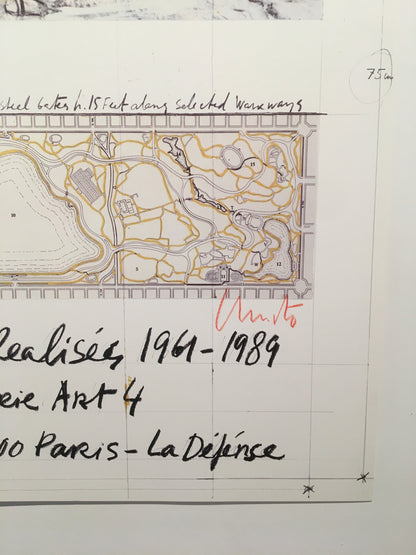 steel Gates h. 15 Feet along selected Walkways
75 cm
10
15
5
12
Christo
Realisés 1961-1989
erie Art 4
00 Paris - La Défense